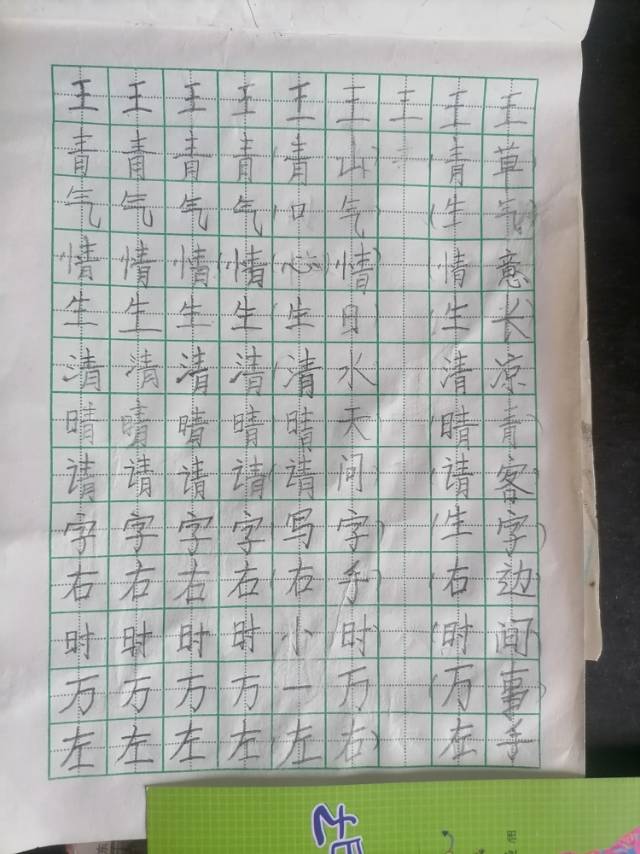 王王王王王王王王王
青青青青(青山)(青草)
气气气气(口气)(生气)
情情情(情(心)情)情意
生生生生(生日(生长)
清清清清(清水清凉
晴晴晴晴(晴天(晴青)
请请请请(请问(请客)
字字字字(写字)生字)
右右右右(右手)(右边)
时时时时(小时)(时间)
万万万万(一万)(万事)
左左左左(左右)(左手